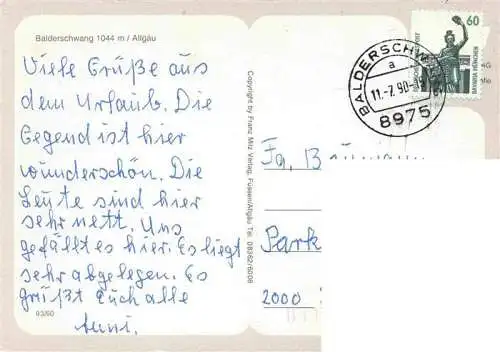 Balderschwang 1044 m / Allgäu
Viele Grüße aus
dem Urlaub. Die
Gegend ist hier
wunderschön. Die
Leute sind hier
sehr nett. Uns
gefällt es hier. Es liegt
sehr abgelegen. Es
grüßt Euch alle
Anni.
93/60
Copyright by Franz Milz Verlag, Füssen/Allgäu Tel. 08362/6208
BALDERSCHWANG
a
11.-7.90-
8975
60
BAVARIA MÜNCHEN
Fa.
Park
2000